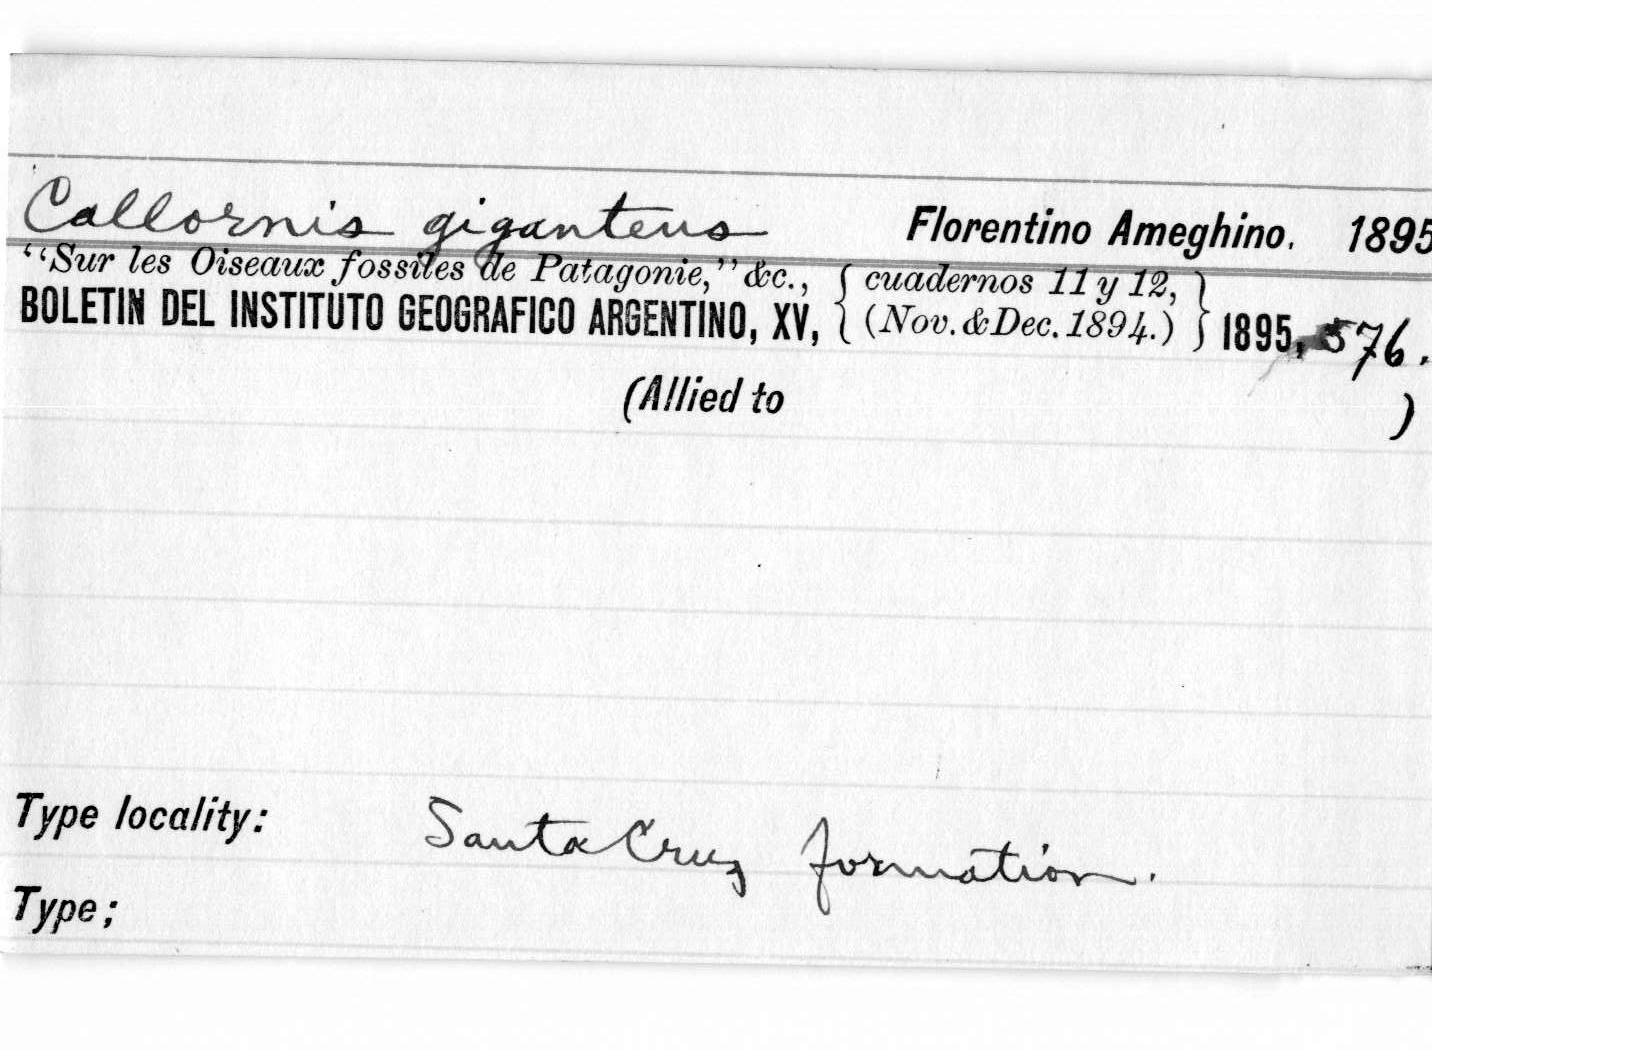 Callornis giganteus Florentino Ameghino. 1895
“Sur les Oiseaux fossiles de Patagonie,” &c., { cuadernos 11 y 12, }
BOLETIN DEL INSTITUTO GEOGRAFICO ARGENTINO, XV, { (Nov. & Dec. 1894.) } 1895, 576.
(Allied to )
Type locality: Santa Cruz formation.
Type;